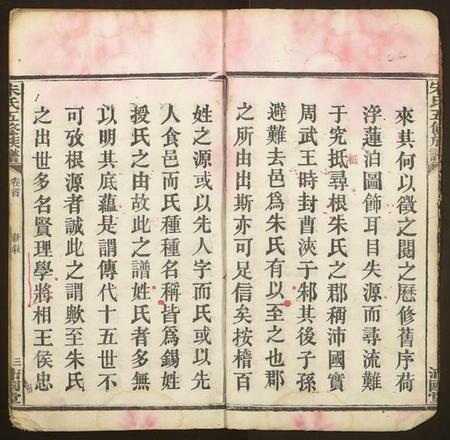 朱氏五修族譜
來其何以徵之閱之歷修舊序荷
浮蓮泊圖飾耳目失源而尋流難
于究抵尋根朱氏之郡稱沛國實
周武王時封曹浹于邾其後子孫
避難去邑為朱氏有以至之也郡
之所由出斯亦可足信矣按稽百
姓之源或以先人字而氏或以先
人食邑而氏種種名稱皆爲錫姓
授氏之由故此之譜姓氏者多無
以明其底蘊是謂傳代十五世不
可攷根源者誠此之謂歟至朱氏
之出世多名賢理學將相王侯忠
朱氏五修族譜
卷首
三
沛國堂